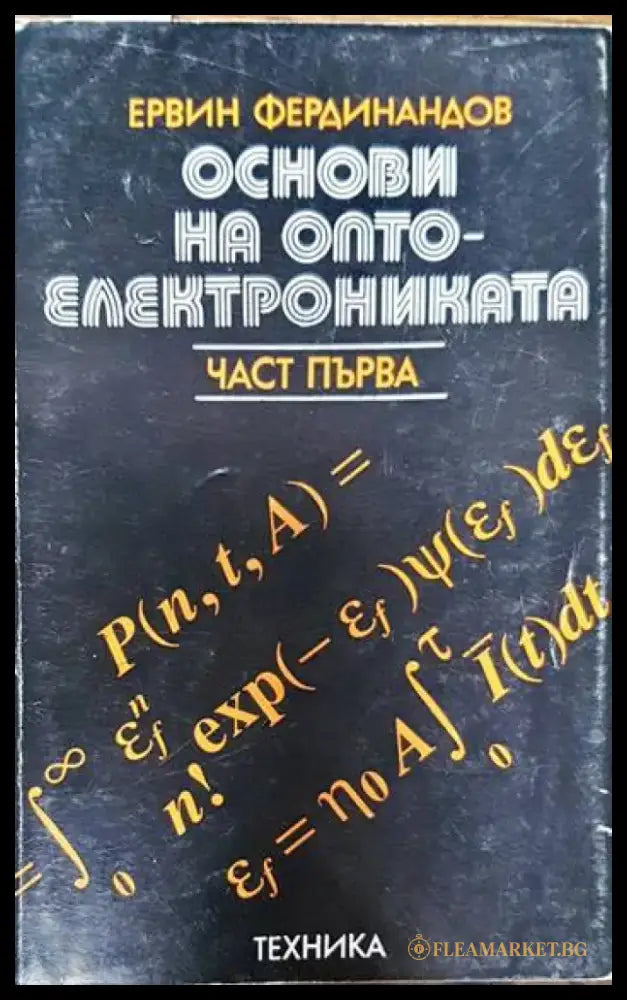 ЕРВИН ФЕРДИНАНДОВ
ОСНОВИ
НА ОПТО-
ЕЛЕКТРОНИКАТА
ЧАСТ ПЪРВА
P(n, t, A) =
= ∫₀^∞ εf^n / n! exp(– εf) ψ(εf) dεf
εf = η₀ A ∫₀^τ Ī(t)dt
ТЕХНИКА
FLEAMARKET.BG